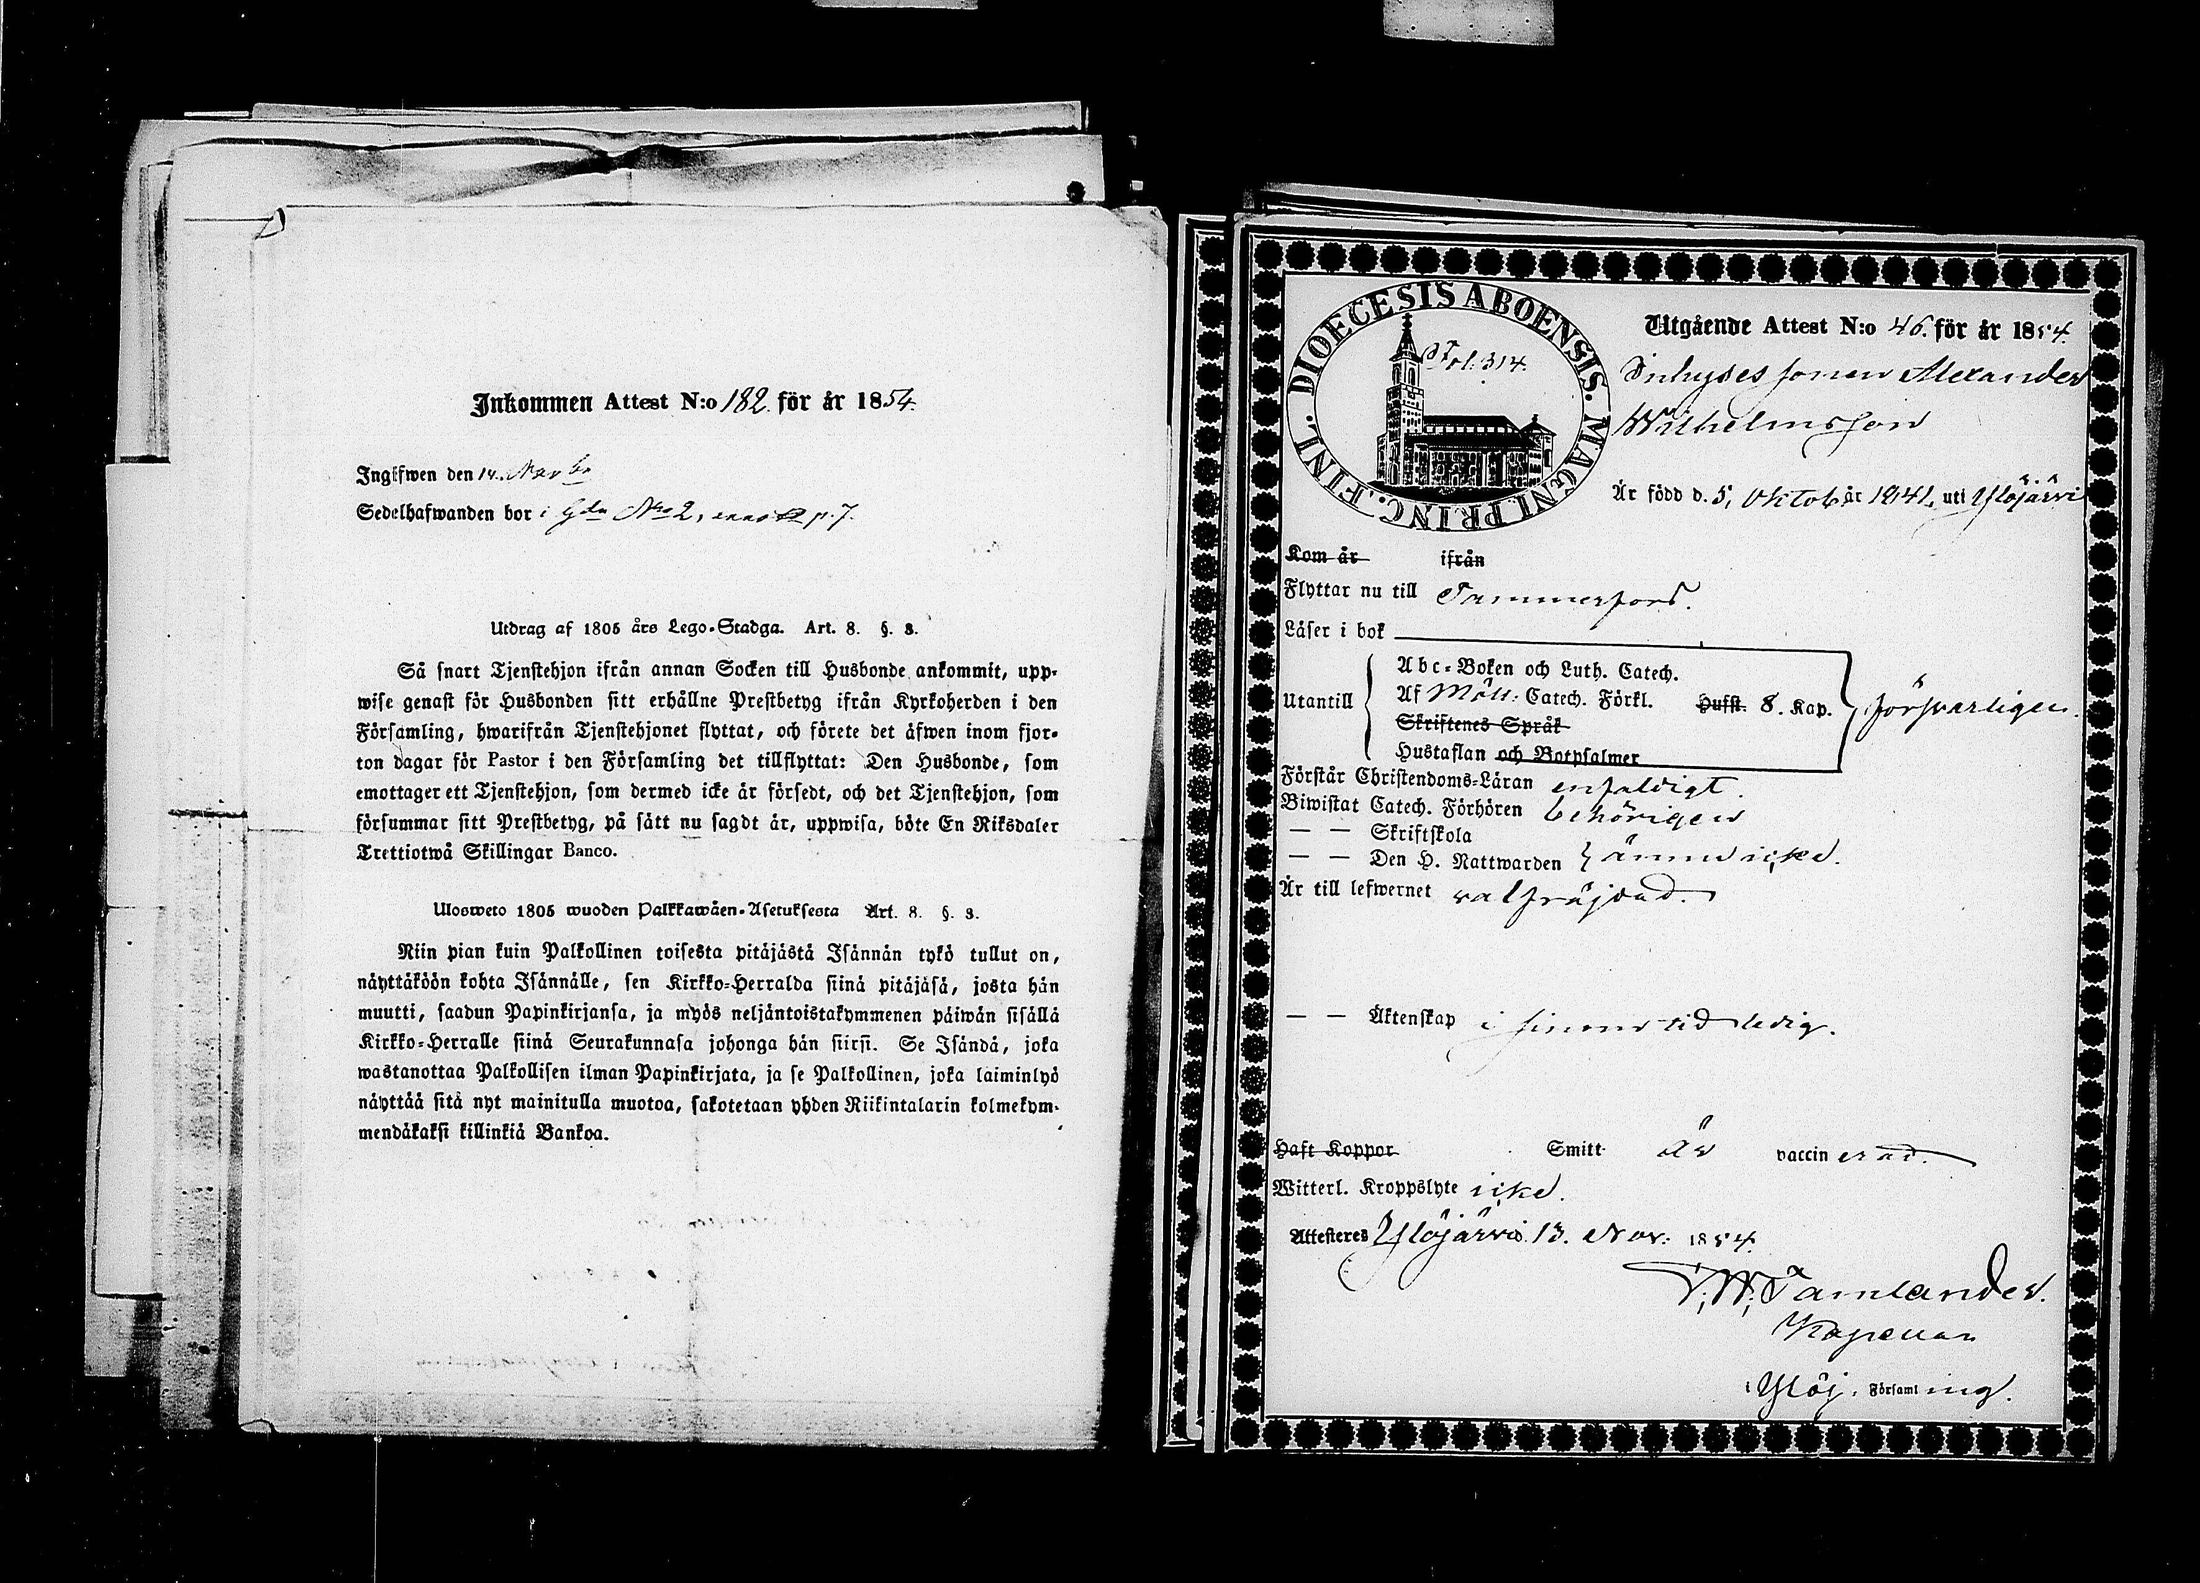 Inkommen Attest N:o 182. för år 1854.
Ingifwen den 14. Nov br
Sedelhafwanden bor i Gdn Nro 2, p. 7.
Utdrag af 1805 års Lego-Stadga. Art. 8. §. 3.
Så snart Tjenstehjon ifrån annan Socken till Husbonde ankommit, upp-
wise genast för Husbonden sitt erhållne Prestbetyg ifrån Kyrkoherden i den
Församling, hwarifrån Tjenstehjonet flyttat, och förete det äfwen inom fjor-
ton dagar för Pastor i den Församling det tillflyttat: Den Husbonde, som
emottager ett Tjenstehjon, som dermed icke är försedt, och det Tjenstehjon, som
försummar sitt Prestbetyg, på sätt nu sagdt är, uppwisa, böte En Riksdaler
Trettiotwå Skillingar Banco.
Ulosweto 1805 wuoden Palkkawäen-Asetuksesta Art. 8. §. 3.
Niin pian kuin Palkollinen toisesta pitäjästä Isännän tykö tullut on,
näyttäköön kohta Isännälle, sen Kirkko-Herralda siinä pitäjäsä, josta hän
muutti, saadun Papinkirjansa, ja myös neljäntoistakymmenen päiwän sisällä
Kirkko-Herralle siinä Seurakunnasa johonga hän siirsi. Se Isändä, joka
wastanottaa Palkollisen ilman Papinkirjata, ja se Palkollinen, joka laiminlyö
näyttää sitä nyt mainitulla muotoa, sakotetaan yhden Riikintalarin kolmekym-
mendäkaksi killinkiä Bankoa.
DIOECESIS ABOENSIS. MAGNI. PRINC. FINL.
Fol. 314.
Utgående Attest N:o 46. för år 1854.
Inhyses sonen Alexander
Wilhelmsson
Är född d. 5, Oktob. år 1841, uti Ylöjärvi
Kom år ifrån
Flyttar nu till Tammerfors.
Läser i bok
Utantill
Abc-Boken och Luth. Catech.
Af Möll: Catech. Förkl. Hufst. 8. Kap.
Skriftenes Språk
Hustaflan och Botpsalmer
försvarligen.
Förstår Christendoms-Läran enfaldigt.
Biwistat Catech. Förhören behörigen
— — Skriftskola
— — Den H. Nattwarden } ännu icke.
Är till lefwernet välfräjdad.
— — Äktenskap i sinom tid ledig.
Haft Koppor Smitt är vaccinerad.
Witterl. Kroppslyte icke.
Attesteres Ylöjärvi 13. Nov: 1854.
W: Tamlander.
Kapellan
i Ylöj. Församling.